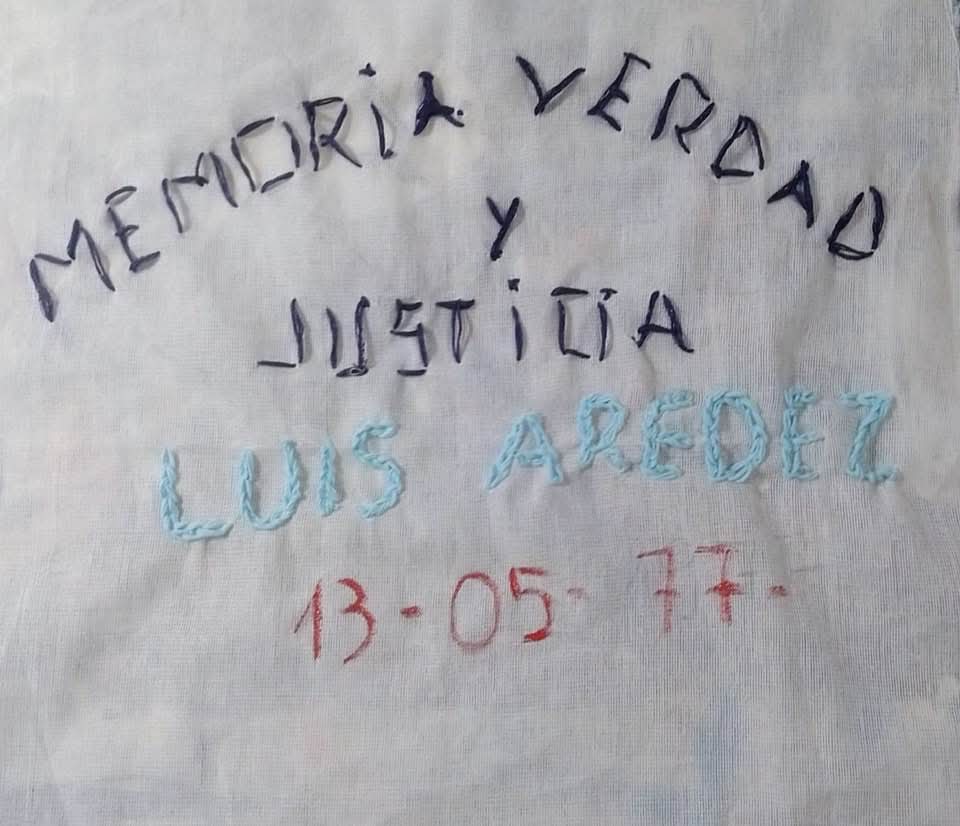 MEMORiA VERDAD
Y
JUSTiCiA
LUIS AREDEZ
13-05-77-